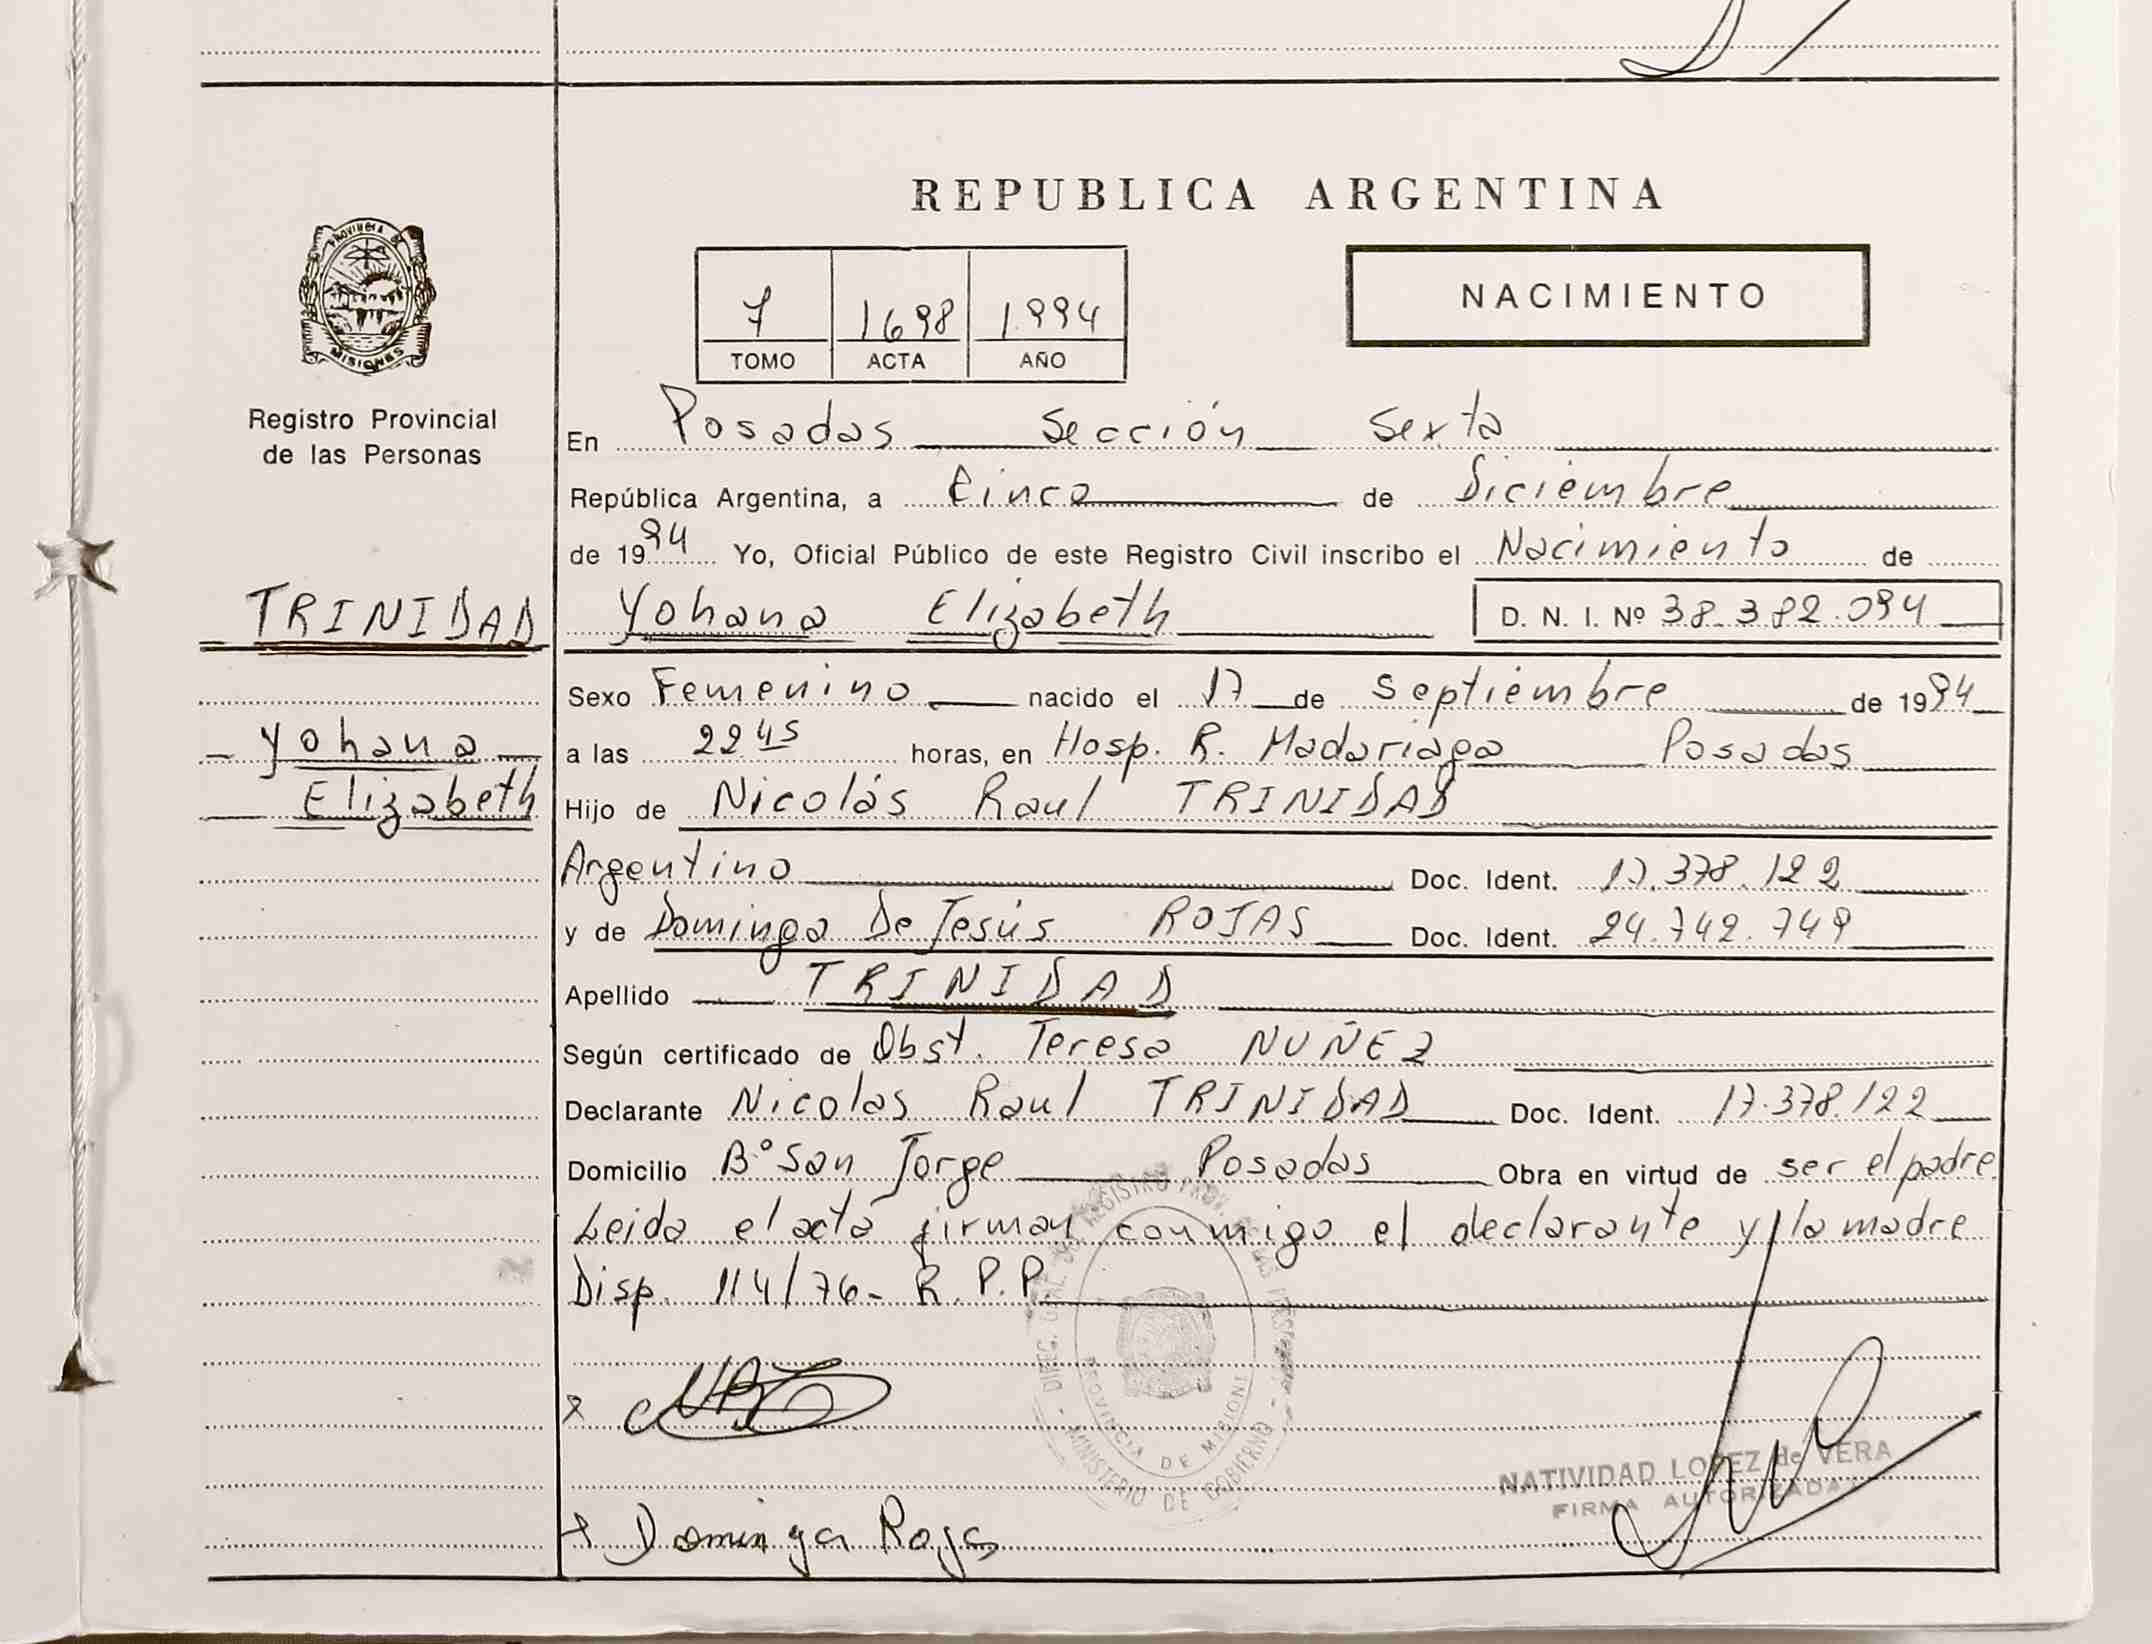 REPUBLICA ARGENTINA
PROVINCIA DE
MISIONES
Registro Provincial
de las Personas
7 1698 1.994
TOMO ACTA AÑO
NACIMIENTO
En Posadas Sección Sexta
República Argentina, a Cinco de Diciembre
de 1994 Yo, Oficial Público de este Registro Civil inscribo el Nacimiento de
TRINIDAD Yohana Elizabeth D. N. I. Nº 38.382.094
Sexo Femenino nacido el 17 de Septiembre de 1994
Yohana a las 22 45 horas, en Hosp. R. Madariaga Posadas
Elizabeth Hijo de Nicolás Raul TRINIDAD
Argentino Doc. Ident. 17.378.122
y de Dominga De Jesús ROJAS Doc. Ident. 24.742.749
Apellido TRINIDAD
Según certificado de Obst. Teresa NUÑEZ
Declarante Nicolas Raul TRINIDAD Doc. Ident. 17.378.122
Domicilio Bº San Jorge Posadas Obra en virtud de ser el padre
Leida el acta firman conmigo el declarante y la madre
Disp. 114/76- R.P.P.
DIREC. GRAL. DEL REGISTRO PROV. DE LAS PERSONAS
PROVINCIA DE MISIONES
MINISTERIO DE GOBIERNO
NATIVIDAD LOPEZ de VERA
FIRMA AUTORIZADA
Dominga Rojas